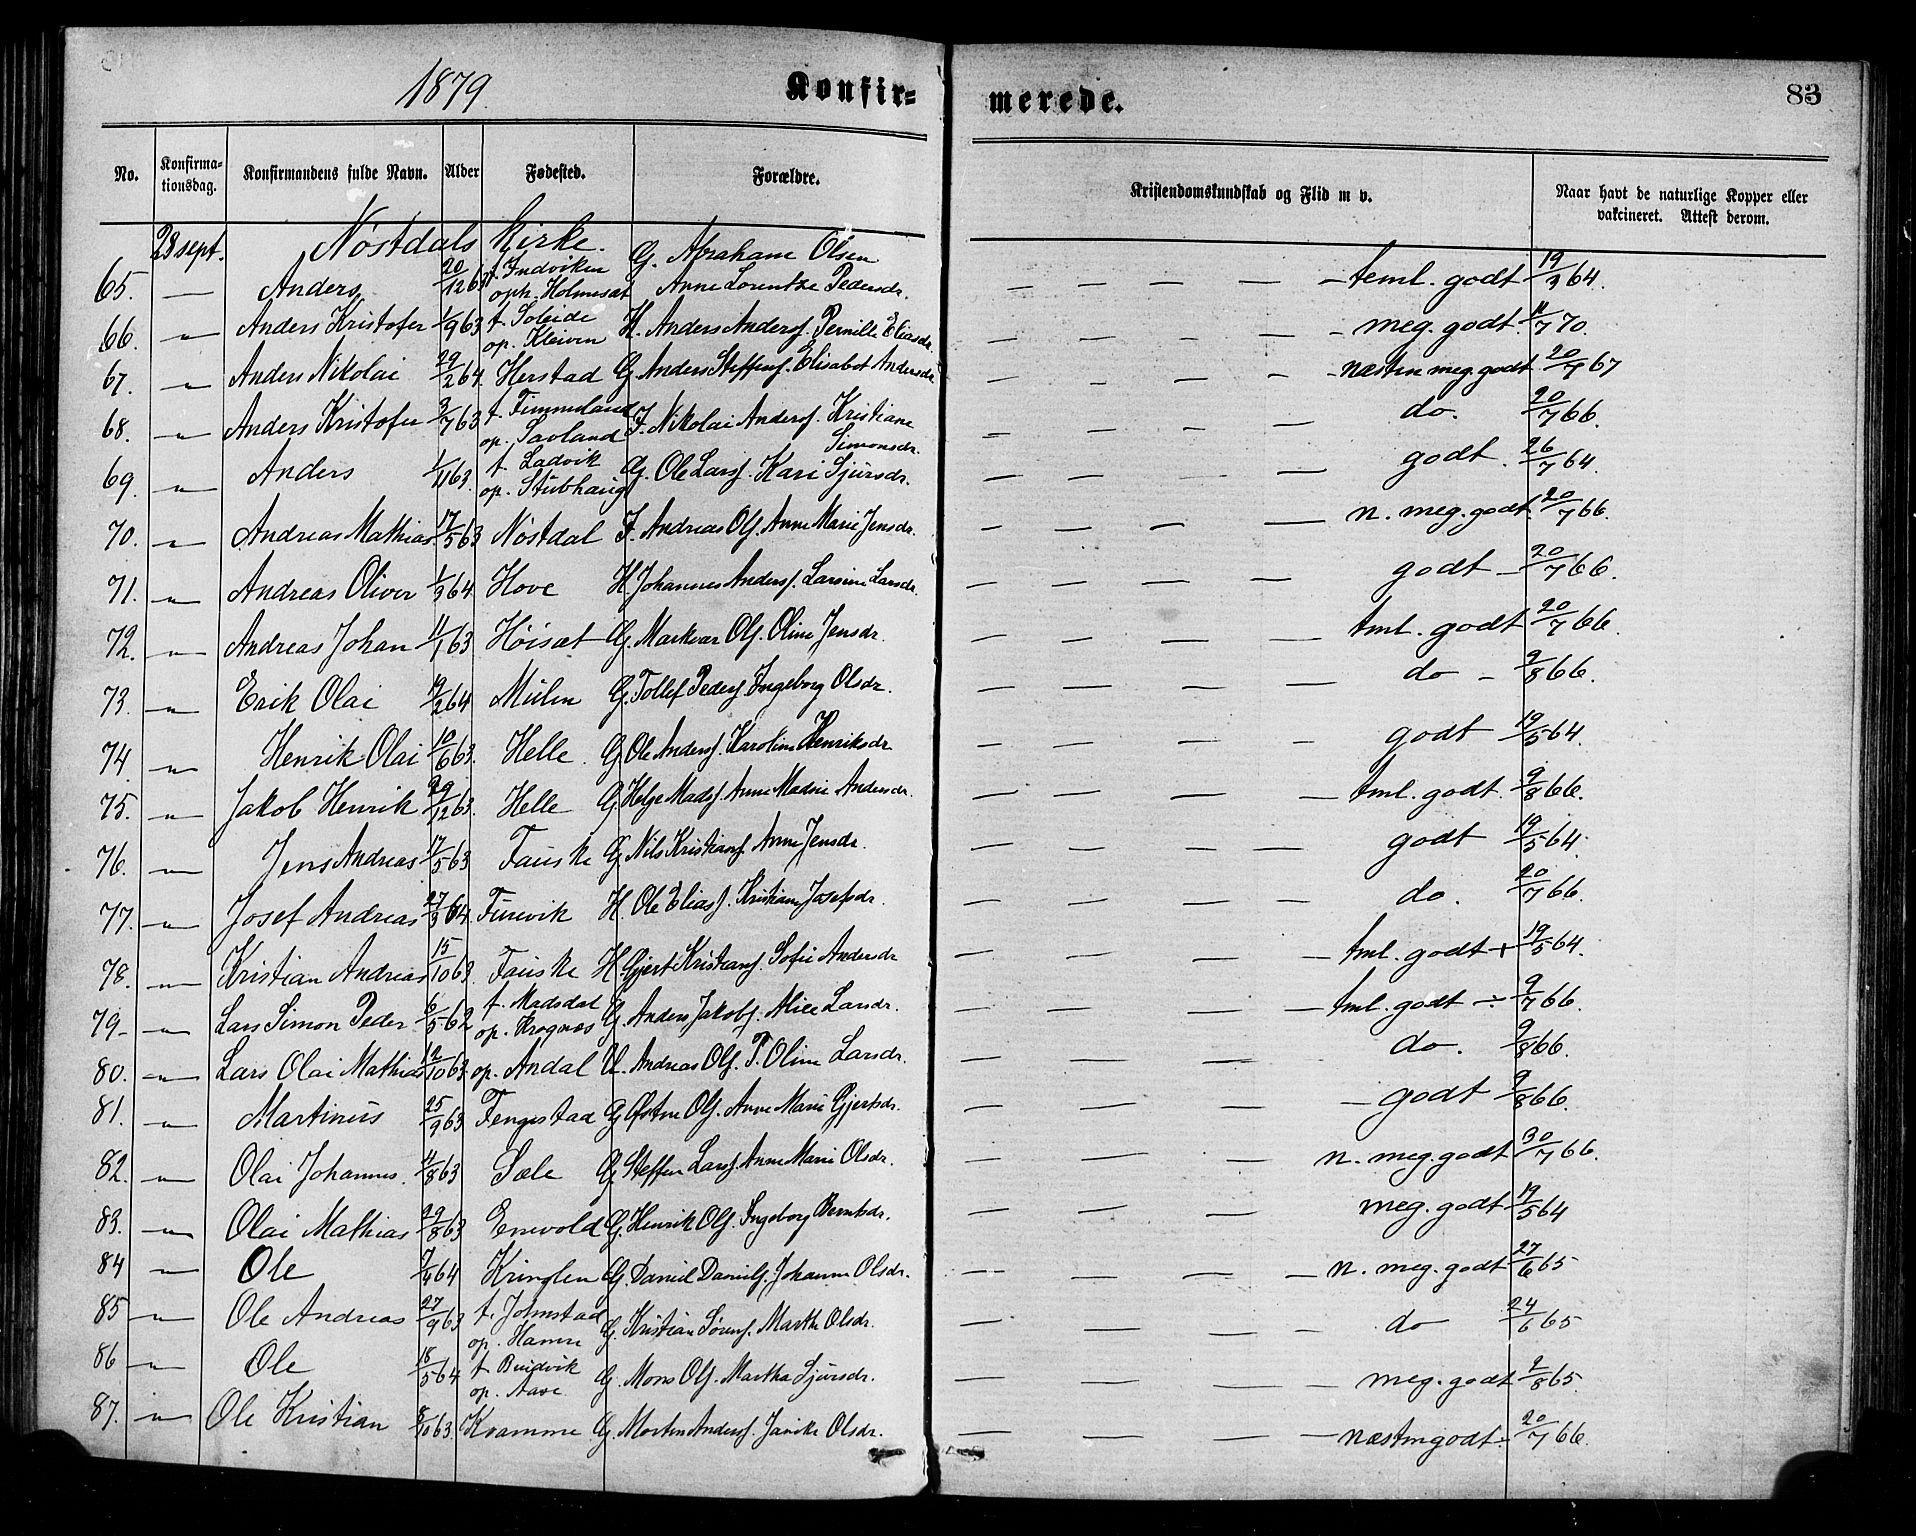 1879.
Konfir= merede.
83
No. Konfirma-tionsdag. Konfirmandens fulde Navn. Alder Fødested. Forældre. Kristendomskundskab og Flid m v. Naar havt de naturlige Kopper eller vakcineret. Attest derom.
28 sept. Nøstdals Kirke.
65. — Anders 20/12 f. Indviken op. Holmesæt G. Abraham Olsen Anne Lorentze Pedersdr. — — — — teml. godt 19/3 64.
66. " Anders Kristofer 1/9 63 f. Soleide op. Kleiven H. Anders Andersf. Pernille Eliasdr. — — — — meg. godt 11/7 70.
67. " Anders Nikolai 29/2 64. Herstad G. Anders Steffensf. Elisabet Andersdr. — — — — næsten meg. godt 20/7 67
68. " Anders Kristofer 3/7 63 f. Timmeland op. Savland F. Nikolai Andersf. Kristiane Simonsdr. — — — — do. 20/7 66.
69. " Anders 1/11 63. f. Ladvik op. Stubhaug G. Ole Larsf. Kari Sjursdr. — — — godt. 26/7 64.
70. " Andreas Mathias 17/5 63 Nøstdal F. Andreas Olf. Anne Marie Jensdr. — — — — n. meg. godt. 20/7 66.
71. " Andreas Oliver 1/3 64. Hove H. Johannes Andersf. Larsine Larsdr. — — — — godt 20/7 66.
72. " Andreas Johan 11/1 63 Høisæt G. Markvar Olf. Oline Jensdr. — — — — tml. godt 20/7 66.
73. " Erik Olai 19/2 64 Mulen G. Tollef Pedersf. Ingeborg Olsdr. — — — — do — 9/8 66.
74. " Henrik Olai 10/6 63. Helle. G. Ole Andersf. Karoline Henriksdr. — — — — godt 19/5 64.
75. " Jakob Henrik 29/12 63. Helle G. Helge Madsf. Anne Madsie Andersdr. — — — — tml. godt. 9/8 66.
76. " Jens Andreas 17/5 63 Fauske G. Nils Kristiansf. Anne Jensdr. — — — — godt 19/5 64.
77. " Josef Andreas 27/3 64. Furevik H. Ole Eliasf. Kristiane Josefsdr. — — — — do. 20/7 66.
78. " Kristian Andreas 15/10 63. Fauske H. Gjert Kristiansf. Sofie Andersdr — — — — tml. godt + 19/5 64.
79. " Lars Simon Peder 6/5 62 f. Madsdal op. Krognæs G. Anders Jakobf. Alice Larsdr. — — — — tml. godt ÷ 9/7 66.
80. " Lars Olai Mathias 12/10 63. op. Andal U. Andreas Olf. P. Oline Larsdr. — — — — do. 9/8 66.
81. " Martinus 25/9 63 Fengestad G. Østen Olf. Anne Marie Gjertsdr. — — — — godt 9/8 66.
82. " Olai Johannes. 4/8 63 Sæle G. Steffen Larsf. Anne Marie Olsdr. — — — — n. meg. godt 30/7 66.
83. " Olai Mathias 29/8 63 Enevold G. Henrik Olf. Ingeborg Berntsdr. — — — — meg. godt 19/5 64
84 " Ole 7/4 64 Kringlen G. Daniel Danielf. Johanne Olsdr. — — — — n. meg. godt 27/6 65
85 " Ole Andreas 27/9 63 f. Jolmstad op. Hamre G. Kristian Sørensf. Marthe Olsdr. — — — — do 24/6 65
86 " Ole 18/5 64 f. Buidvik op. Aase G. Mons Olf. Martha Sjursdr. — — — — meg. godt 2/8 65.
87. " Ole Kristian 8/10 63. Kvamme G. Morten Andersf. Janike Olsdr. — — — — næsten godt. 20/7 66.